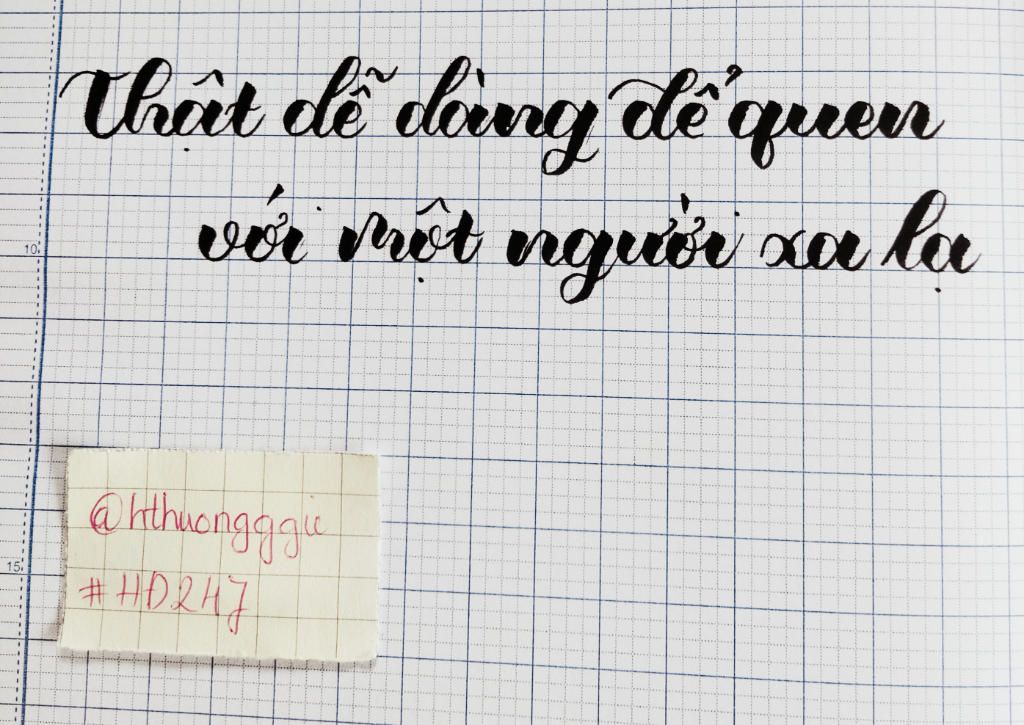 Thật dễ dàng để quen
với một người xa lạ
10
@hthuongggiu
#HD247
15